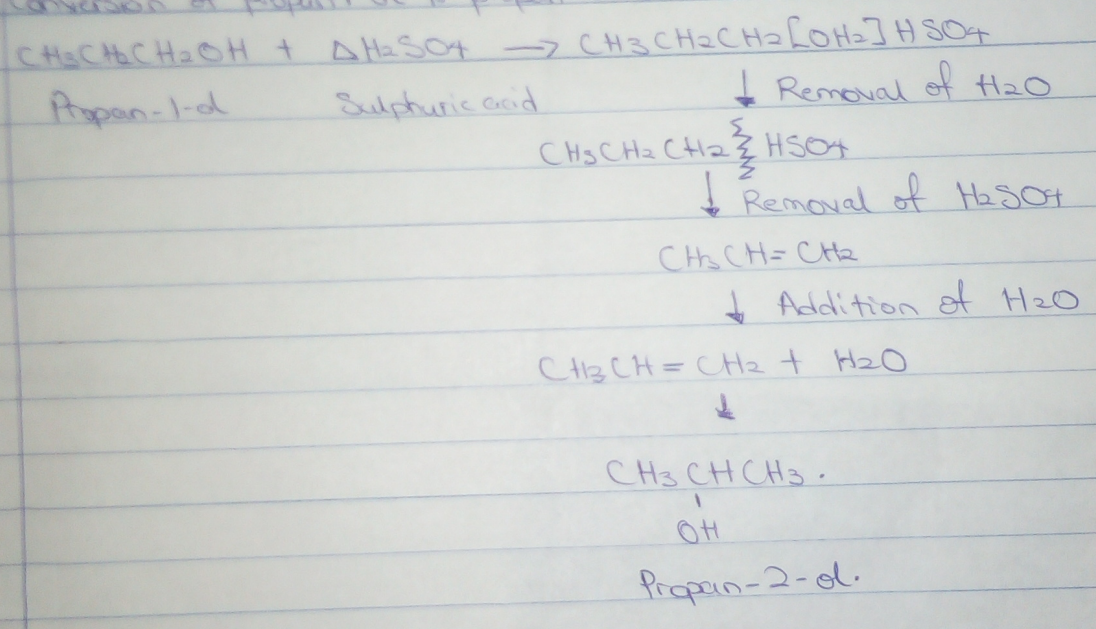 Conversion of propan-1-ol to propan
CH3CH2CH2OH + ΔH2SO4 → CH3CH2CH2[OH2]HSO4
Propan-1-ol Sulphuric acid ↓ Removal of H2O
CH3CH2CH2 HSO4
↓ Removal of H2SO4
CH3CH=CH2
↓ Addition of H2O
CH3CH=CH2 + H2O
↓
CH3CHCH3.
OH
Propan-2-ol.